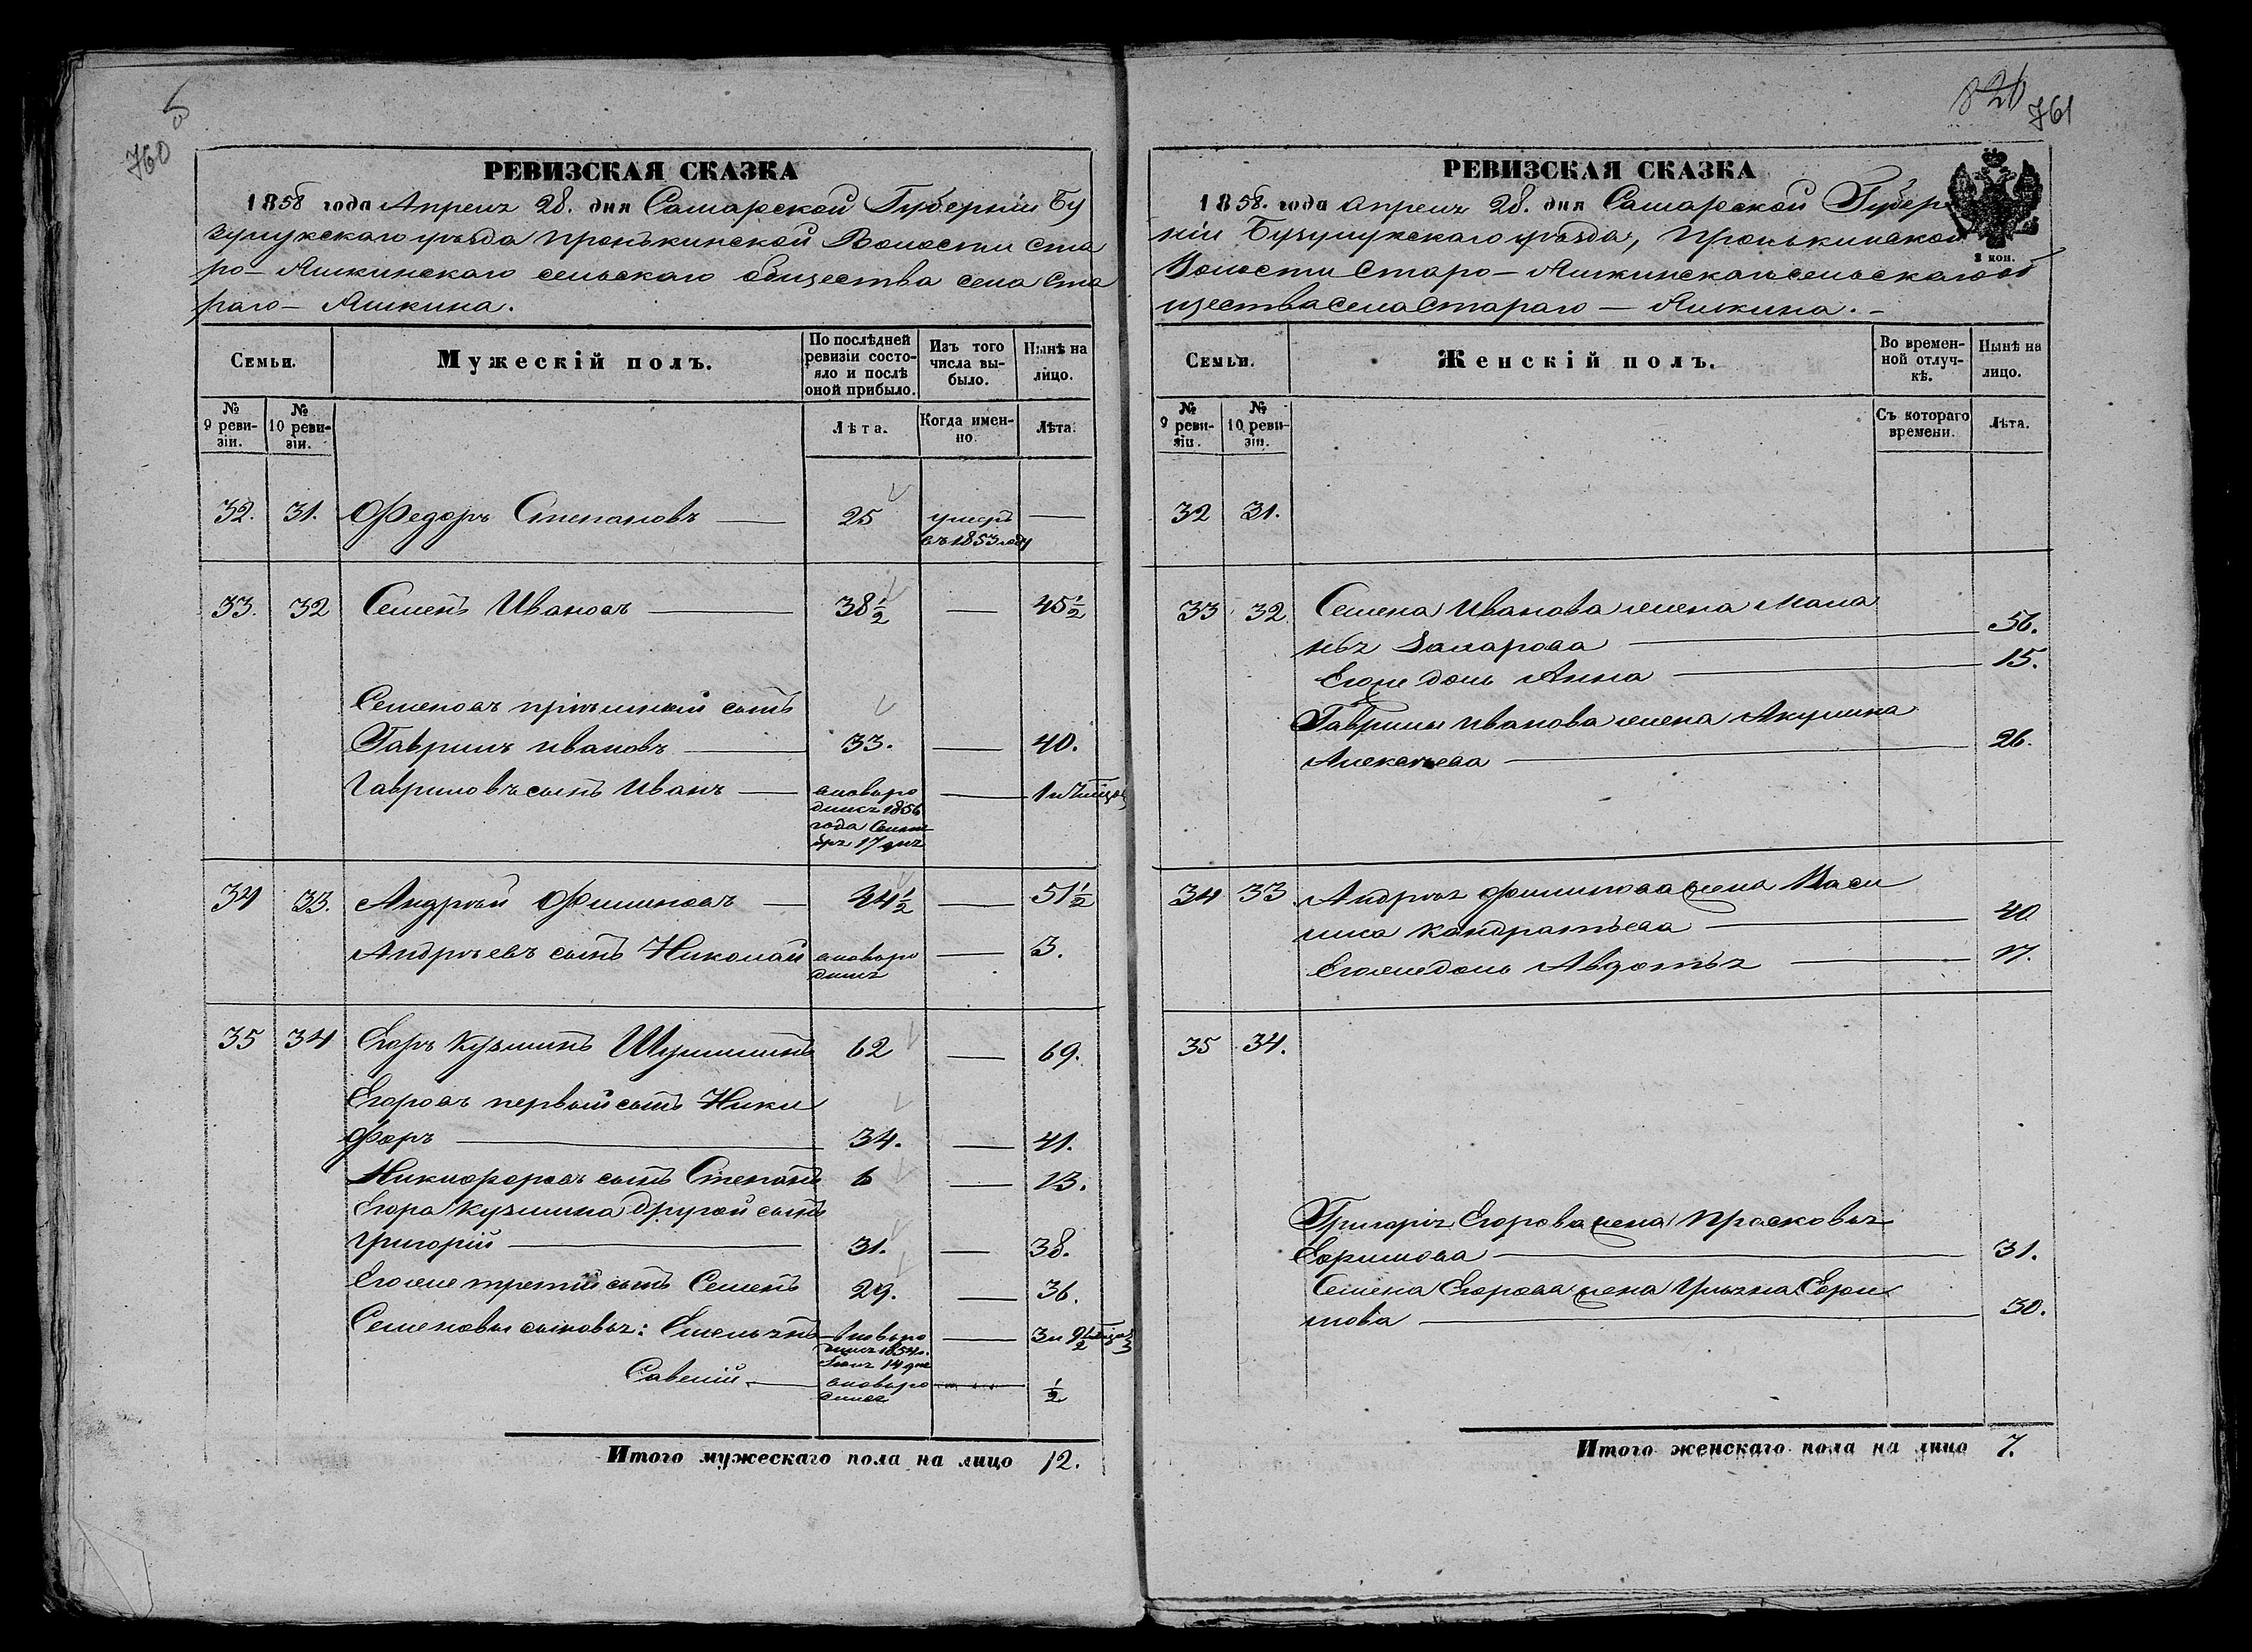 5
760
РЕВИЗСКАЯ СКАЗКА
1858 года Апреля 28. дня Самарской Губерніи Бу
зулукскаго уѣзда Пронькинской Волости Ста
ро-Яшкинскаго сельскаго общества села Ста
раго-Яшкина.
Семьи.
Мужескій полъ.
По послѣдней ревизіи состояло и послѣ оной прибыло.
Изъ того числа выбыло.
Нынѣ на лицо.
№ 9 ревизіи.
№ 10 ревизіи.
Лѣта.
Когда именно.
Лѣта.
32. 31. Федоръ Степановъ — 25 умеръ —
въ 1853 году
33. 32 Семенъ Ивановъ — 38½ — 45½
Семеновъ пріемный сынъ
Гаврилъ Ивановъ — 33. — 40.
Гавриловъ сынъ Иванъ — вновьро — 1 и 7 мѣсяц
дился 1856
года Сентя
бря 17 дня
34 33. Андрей Филиповъ — 44½ — 51½
Андреевъ сынъ Николай вновьро — 3.
дился
35 34 Егоръ Кузьминъ 62 — 69.
Егоровъ первый сынъ Ники
форъ — 34. — 41.
Никифоровъ сынъ Степанъ 6 — 13.
Егора Кузьмина другой сынъ
Григорій — 31. — 38.
Егоже третій сынъ Семенъ 29. — 36.
Семеновы сыновья: Емельянъ вновьро — 3 и 9½ мѣсяц
дился 1854 г.
14 дня
Савелій — вновьро — ½
дился
Итого мужескаго пола на лицо 12.
826
761
РЕВИЗСКАЯ СКАЗКА
1858. года Апреля 28. дня Самарской Губер
ніи Бузулукскаго уѣзда, Пронькинской
Волости Старо-Яшкинскаго сельскаго об
щества села Стараго — Яшкина. –
3 коп.
Семьи.
Женскій полъ.
Во временной отлучкѣ.
Нынѣ на лицо.
№ 9 ревизіи.
№ 10 ревизіи.
Съ котораго времени.
Лѣта.
32 31.
33 32. Семена Иванова жена Мала
нья Захарова — 56.
Егоже дочь Анна — 15.
Гаврилы Иванова жена Акулина
Алексѣева — 26.
34 33 Андрея Филипова жена Васи
лиса Кондратьева — 40
Егоже дочь Авдотья — 17.
35 34.
Григорія Егорова жена Прасковья
Ефимова — 31.
Семена Егорова жена Ульяна Ефи
мова — 30.
Итого женскаго пола на лицо 7.